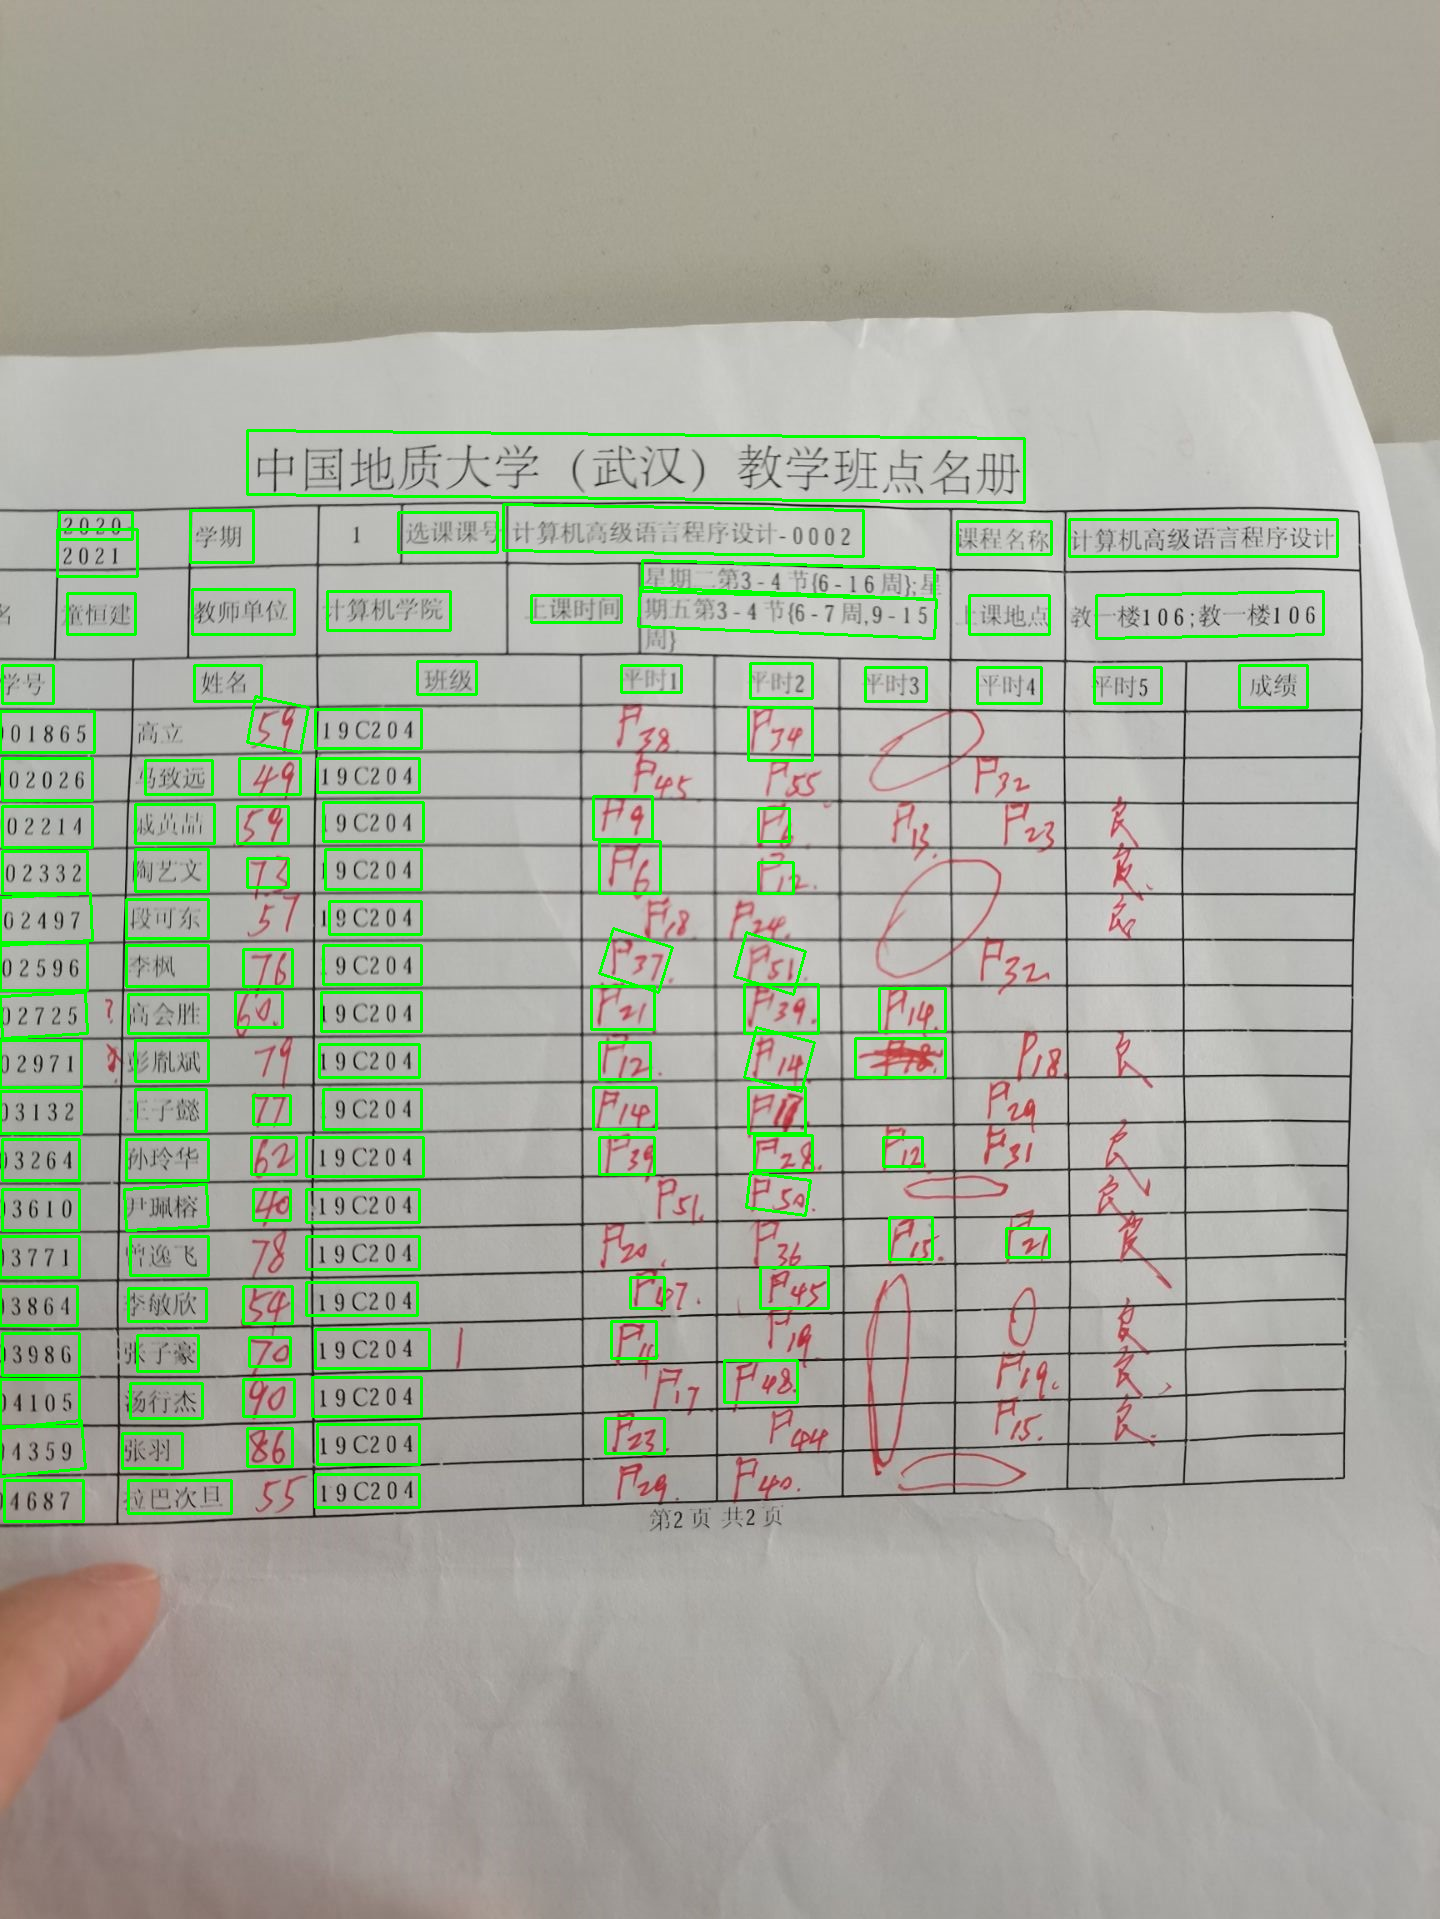 中国地质大学（武汉）教学班点名册
2020-2021 学期 1 选课课号 计算机高级语言程序设计-0002 课程名称 计算机高级语言程序设计
名 童恒建 教师单位 计算机学院 上课时间 星期二第3-4节{6-16周};星期五第3-4节{6-7周,9-15周} 上课地点 教一楼106;教一楼106
学号 姓名 班级 平时1 平时2 平时3 平时4 平时5 成绩
001865 高立 59 19C204 P38. P34
002026 马致远 49 19C204 P45. P55 P32
02214 59 19C204 P9 P6 P13. P23 良
02332 陶艺文 73 19C204 P6 P12. 良
02497 段可东 57 19C204 P18. P24.
02596 李枫 76 19C204 P37. P51. P32.
02725 ? 高会胜 60. 19C204 P21 P39. P14.
02971 彭胤斌 79 19C204 P12. P14. P18. 良
03132 王子懿 77 19C204 P14. P29
03264 孙玲华 62 19C204 P39 P28. P12. P31 良
03610 尹珮榕 40 19C204 P51. P50. 良
03771 曾逸飞 78 19C204 P20. P36 P15. P21 良
03864 李敏欣 54 19C204 P47. P45 良
03986 张子豪 70 19C204 P11 P19. 良
04105 汤行杰 90 19C204 P17. P48. P19. 良
04359 张羽 86 19C204 P23. P44 P15. 良
04687 拉巴次旦 55 19C204 P29. P40.
第2页 共2页